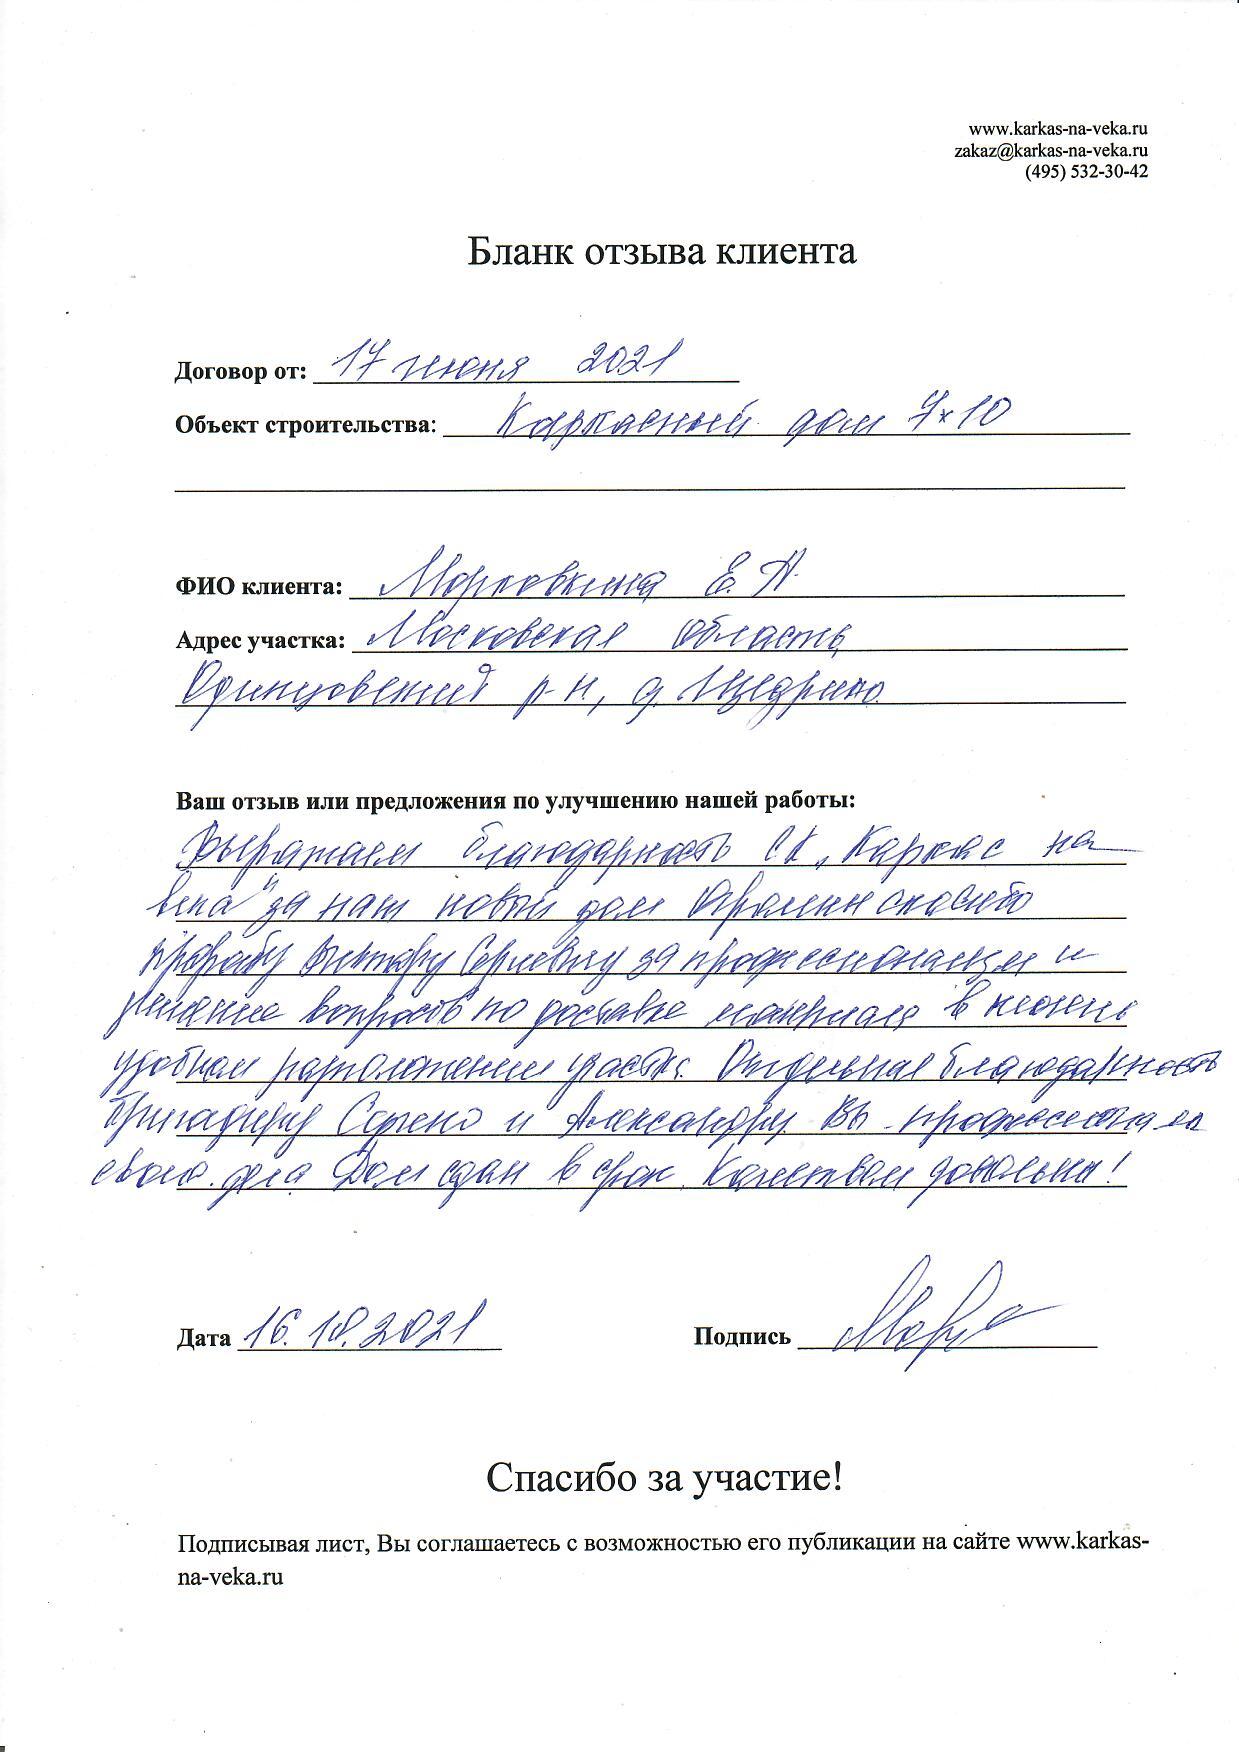 www.karkas-na-veka.ru
zakaz@karkas-na-veka.ru
(495) 532-30-42
Бланк отзыва клиента
Договор от: 17 июня 2021
Объект строительства: Каркасный дом 7×10
ФИО клиента: Морковкина Е. А.
Адрес участка: Московская область,
Одинцовский р-н, д. Щедрино.
Ваш отзыв или предложения по улучшению нашей работы:
Выражаем благодарность СК „Каркас на
века" за наш новый дом Огромн спасибо
прорабу Виктору Сергеевичу за профессионализм и
решение вопросов по доставке материала в
удобном расположении участка. Отдельная благодарность
бригадиру и Александру. Вы - профессионалы
своего дела Дом сдан в срок. Качеством довольны!
Дата 16.10.2021 Подпись
Спасибо за участие!
Подписывая лист, Вы соглашаетесь с возможностью его публикации на сайте www.karkas-
na-veka.ru